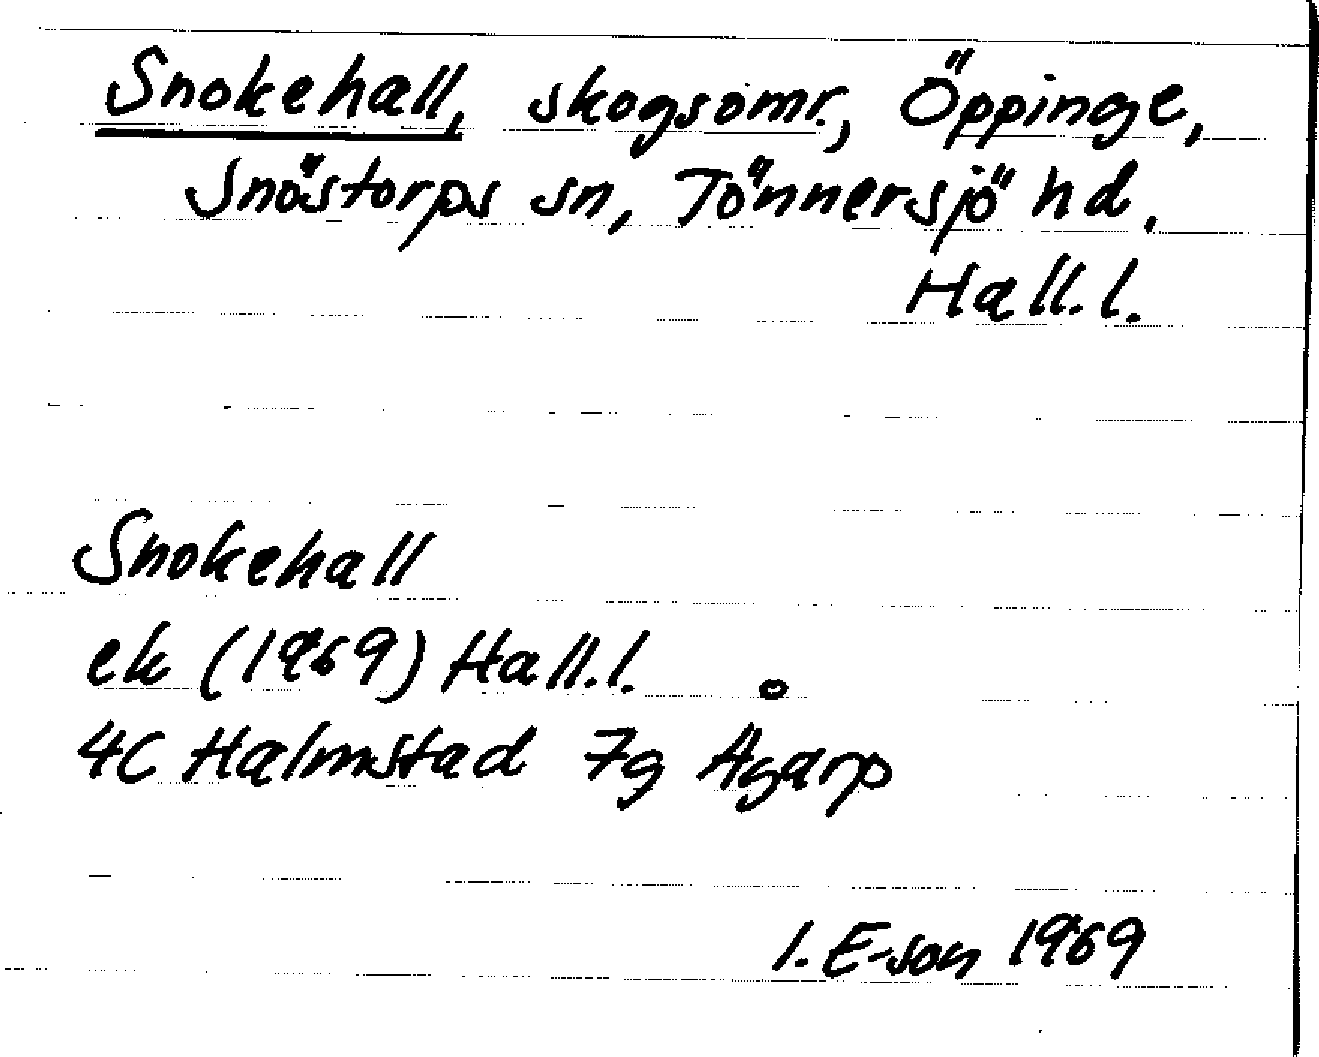 Snokehall, skogsomr., Öppinge,
Snöstorps sn, Tönnersjö hd,
Hall.l.
Snokehall
ek (1969) Hall.l.
4C Halmstad 7g Ågarp
I. E-son 1969